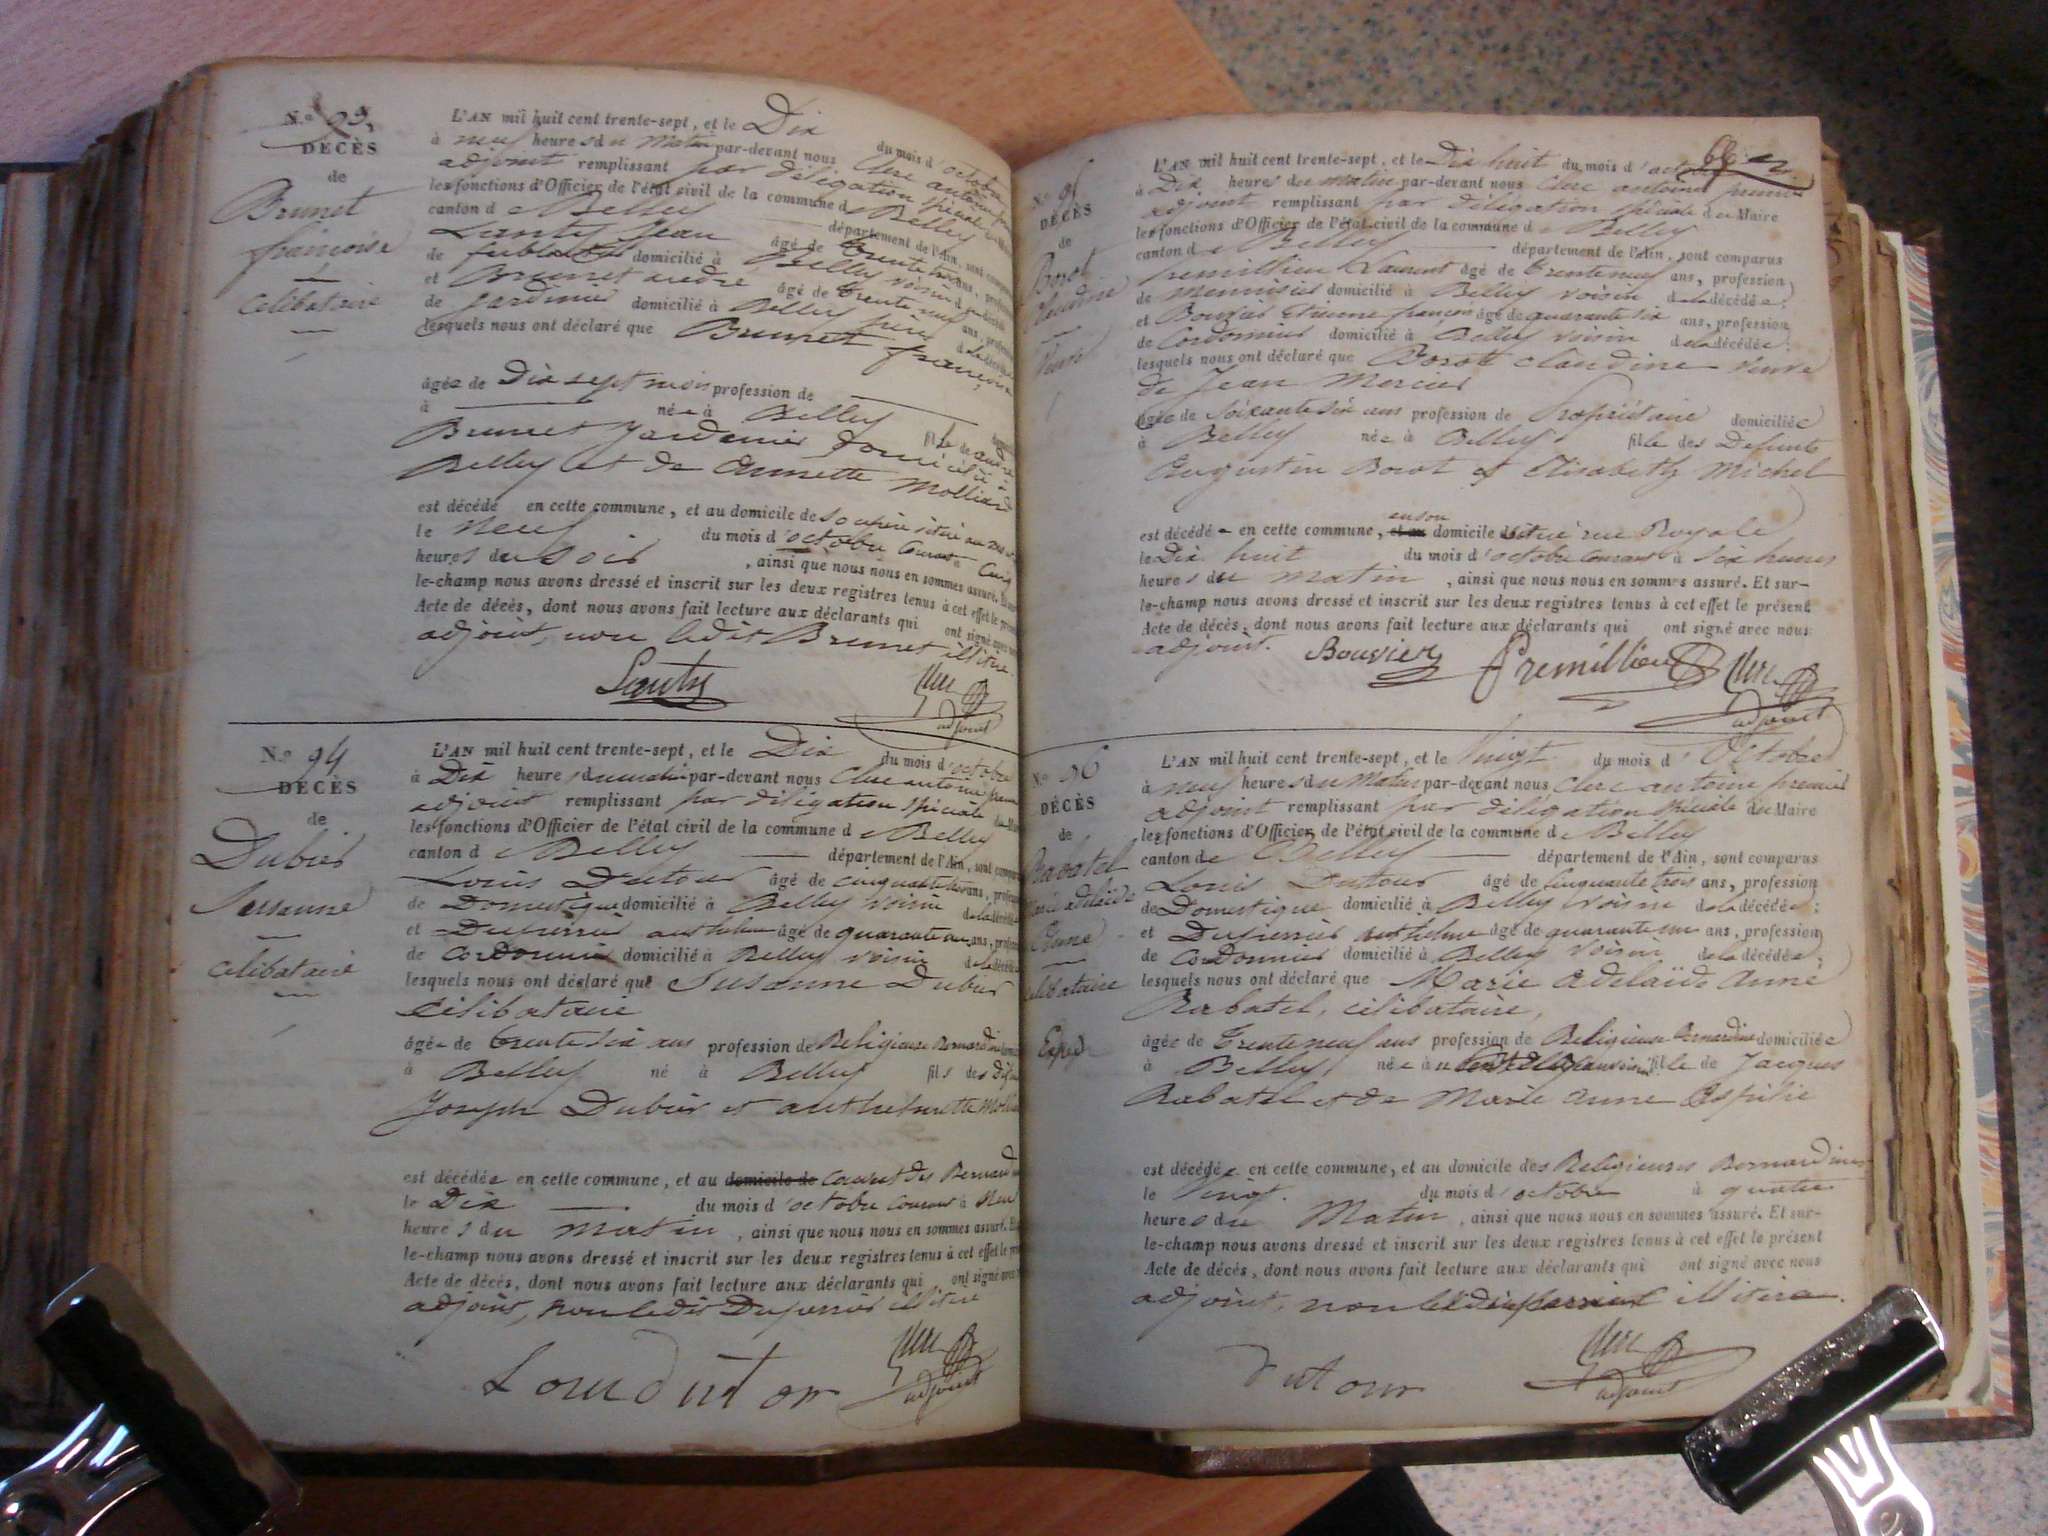 N.o 93.
DÉCÈS
de
Brunet
françoise
célibataire
L'AN mil huit cent trente-sept, et le Dix du mois d'octobre
à neuf heures du Matin par-devant nous Clerc antoine
adjoint remplissant par délégation spéciale du
les fonctions d'Officier de l'état civil de la commune de Belley
canton de Belley département de l'Ain, sont
Jean âgé de trente ans,
de domicilié à Belley voisin d
et Brunet andré âgé de trente neuf ans,
de Jardinier domicilié à Belley père de la
lesquels nous ont déclaré que Brunet françoise
âgée de Dix sept mois profession de
à née à Belley fille de andré
Brunet Jardinier domicilié à
Belley et de Annette Molliard
est décédé en cette commune, et au domicile de son père situé au
le neuf du mois d'octobre courant à Cinq
heures du soir, ainsi que nous nous en sommes assuré. Et
le-champ nous avons dressé et inscrit sur les deux registres tenus à cet effet le
Acte de décès, dont nous avons fait lecture aux déclarants qui ont signé avec
adjoint, non ledit Brunet illitéré.
Clerc
adjoint
N.o 94
DÉCÈS
de
Dubier
Susanne
célibataire
L'AN mil huit cent trente-sept, et le Dix du mois d'octobre
à Dix heures du matin par-devant nous Clerc antoine
adjoint remplissant par délégation spéciale du
les fonctions d'Officier de l'état civil de la commune de Belley
canton de Belley département de l'Ain, sont
Louis Dutour âgé de cinquante trois ans,
de Domestique domicilié à Belley voisin de la
et Duperrier anthelme âgé de quarante un ans,
de Cordonnier domicilié à Belley voisin de la
lesquels nous ont déclaré que Susanne Dubier
Célibataire
âgée de trente six ans profession de Religieuse Bernardine
à Belley né à Belley fils des
Joseph Dubier et anthelmette
est décédée en cette commune, et au domicile de Couvent des
le Dix du mois d'octobre courant à Neuf
heures du matin, ainsi que nous nous en sommes assuré. Et
le-champ nous avons dressé et inscrit sur les deux registres tenus à cet effet le
Acte de décès, dont nous avons fait lecture aux déclarants qui ont signé avec
adjoint, non ledit Duperrier illitéré
Clerc
adjoint
DÉCÈS
de
Borot
Claudine
Veuve
L'AN mil huit cent trente-sept, et le Dix huit du mois d'octobre
à Dix heures du matin par-devant nous Clerc antoine premier
adjoint remplissant par délégation spéciale du Maire
les fonctions d'Officier de l'état civil de la commune de Belley
canton de Belley département de l'Ain, sont comparus
premillieu Laurent âgé de trente neuf ans, profession
de Menuisier domicilié à Belley voisin de la décédée;
et Bouvier Etienne françois âgé de quarante six ans, profession
de Cordonnier domicilié à Belley voisin de la décédée;
lesquels nous ont déclaré que Borot Claudine Veuve
de Jean Mercier
âgée de soixante six ans profession de Propriétaire domiciliée
à Belley née à Belley fille des Defunts
Augustin Borot et Elisabeth Michel
est décédée en cette commune, et au en son domicile situé rue Royale
le Dix huit du mois d'octobre courant à six heures
heures du matin, ainsi que nous nous en sommes assuré. Et sur-
le-champ nous avons dressé et inscrit sur les deux registres tenus à cet effet le présent
Acte de décès, dont nous avons fait lecture aux déclarants qui ont signé avec nous
adjoint. Bouvier Premillieu Clerc
adjoint
N.o 96
DÉCÈS
de
Rabatel
Marie adelaïde
Anne
célibataire
L'AN mil huit cent trente-sept, et le Vingt du mois d'Octobre
à neuf heures du Matin par-devant nous Clerc antoine premier
adjoint remplissant par délégation spéciale du Maire
les fonctions d'Officier de l'état civil de la commune de Belley
canton de Belley département de l'Ain, sont comparus
Louis Dutour âgé de cinquante trois ans, profession
de Domestique domicilié à Belley voisin de la décédée;
et Duperrier anthelme âgé de quarante un ans, profession
de Cordonnier domicilié à Belley voisin de la décédée;
lesquels nous ont déclaré que Marie Adelaïde Anne
Rabatel, célibataire,
âgée de Trente neuf ans profession de Religieuse Bernardine domiciliée
à Belley née à fille de Jacques
Rabatel et de Marie Anne
est décédée en cette commune, et au domicile des Religieuses Bernardines
le Vingt du mois d'octobre à quatre
heures du Matin, ainsi que nous nous en sommes assuré. Et sur-
le-champ nous avons dressé et inscrit sur les deux registres tenus à cet effet le présent
Acte de décès, dont nous avons fait lecture aux déclarants qui ont signé avec nous
adjoint, non ledit Duperrier illitéré.
dutour
Clerc
adjoint